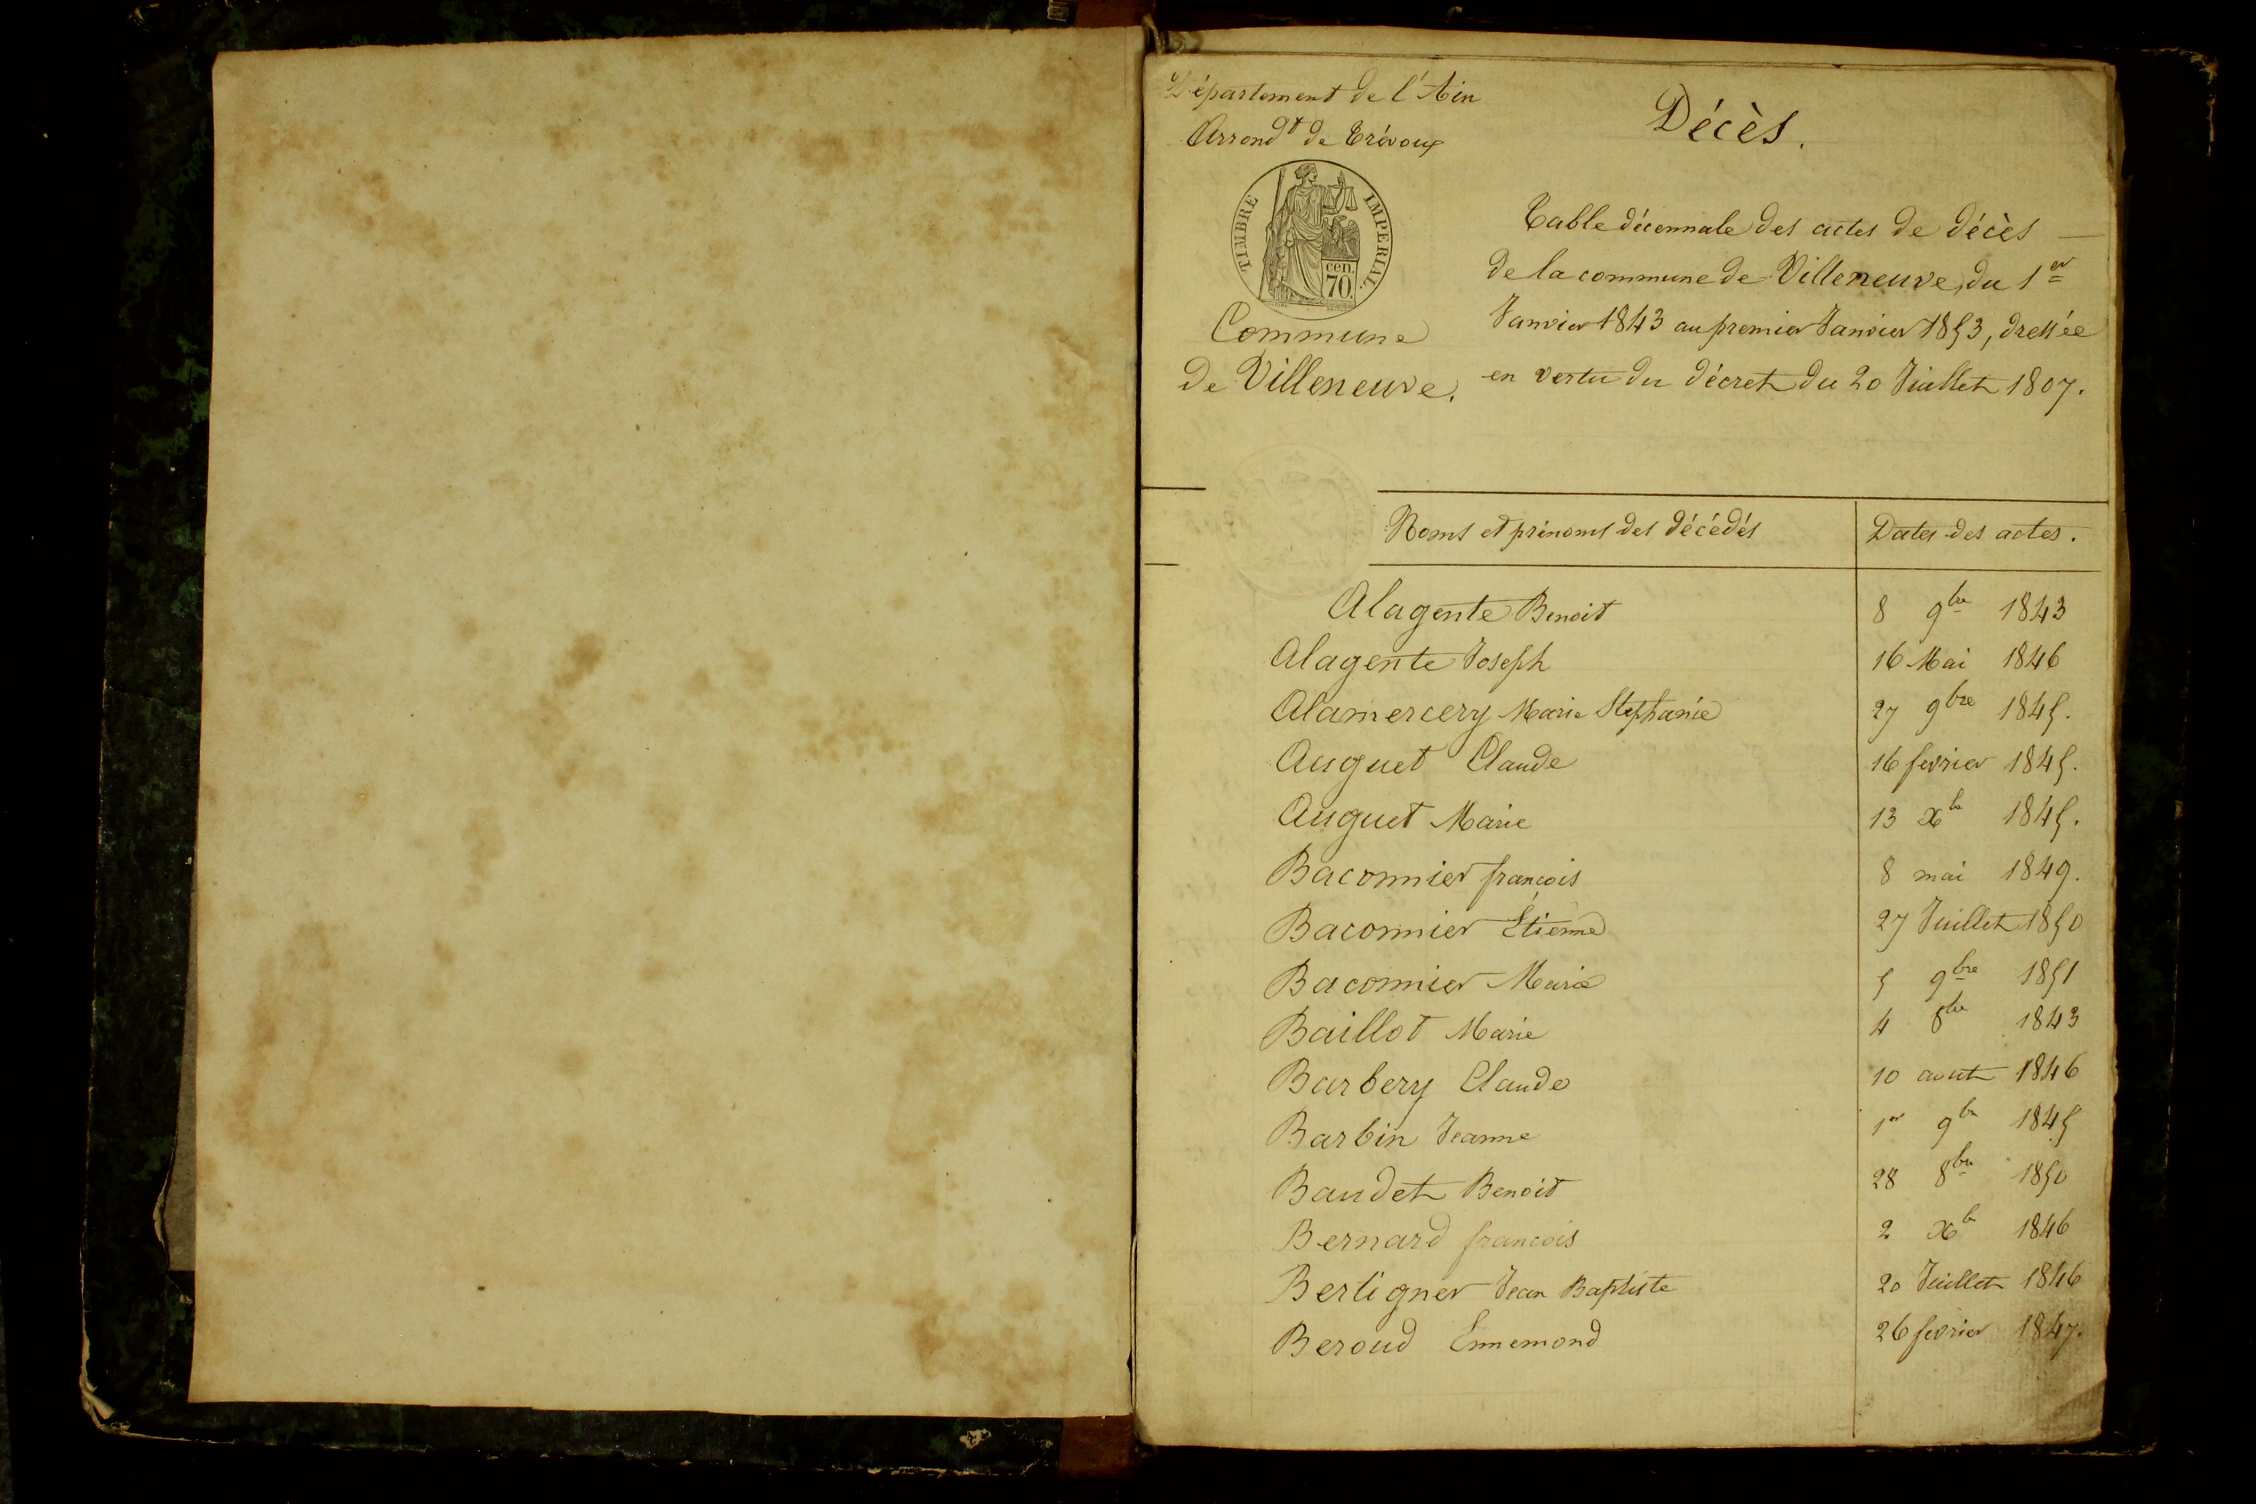 Département de l'Ain
Arrondt de Trévoux
TIMBRE IMPERIAL
cen.
70.
Commune
de Villeneuve.
Décès.
Table décennale des actes de décès
de la commune de Villeneuve, du 1er
Janvier 1843 au premier Janvier 1853, dressée
en vertu du décret du 20 Juillet 1807.
Noms et prénoms des décédés Dates des actes.
Alagente Benoit 8 9bre 1843
Alagente Joseph 16 Mai 1846
Alamercery Marie Stephanie 27 9bre 1845.
Auguet Claude 16 fevrier 1845.
Auguet Marie 13 Xbre 1845.
Baconnier françois 8 mai 1849.
Baconnier Étienne 27 Juillet 1850
Baconnier Marie 5 9bre 1851
Baillot Marie 4 8bre 1843
Barbery Claude 10 aout 1846
Barbin Jeanne 1er 9bre 1845
Baudet Benoit 28 8bre 1850
Bernard francois 2 Xbre 1846
Bertigner Jean Baptiste 20 Juillet 1846
Beroud Ennemond 26 fevrier 1847.